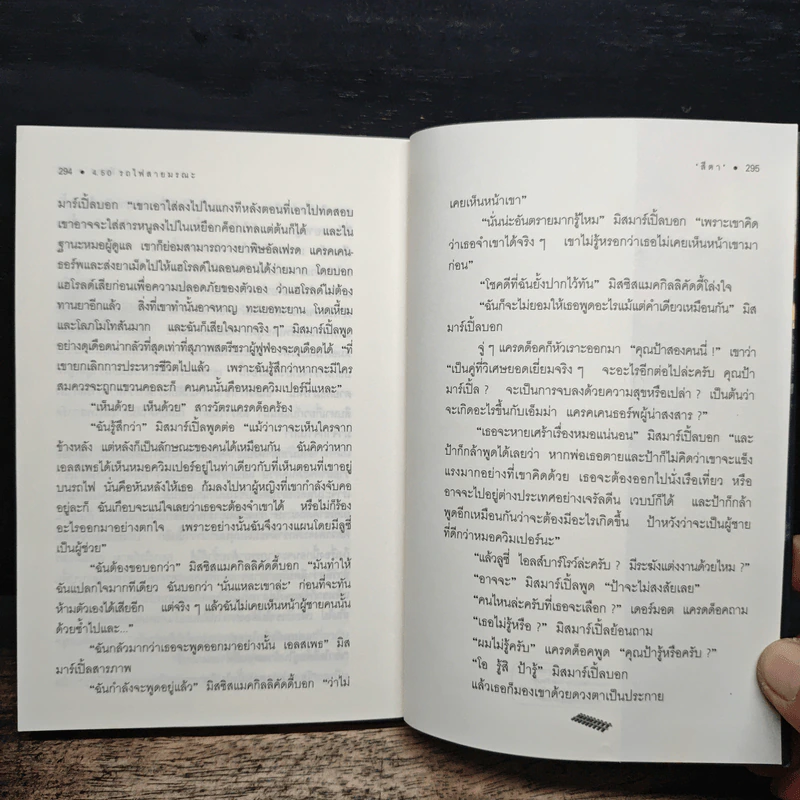 294 • 4.50 รถไฟสายมรณะ
มาร์เปิ้ลบอก “เขาเอาใส่ลงไปในแกงทีหลังตอนที่เอาไปทดสอบ
เขาอาจจะใส่สารหนูลงไปในเหยือกค็อกเทลแต่ต้นก็ได้ และใน
ฐานะหมอผู้ดูแล เขาก็ย่อมสามารถวางยาพิษอัลเฟรด แครคเคน-
ธอร์พและส่งยาเม็ดไปให้แฮโรลด์ในลอนดอนได้ง่ายมาก โดยบอก
แฮโรลด์เสียก่อนเพื่อความปลอดภัยของตัวเอง ว่าแฮโรลด์ไม่ต้อง
ทานยาอีกแล้ว สิ่งที่เขาทำนั้นอาจหาญ ทะเยอทะยาน โหดเหี้ยม
และโลภโมโทสันมาก และฉันก็เสียใจมากจริง ๆ” มิสมาร์เปิ้ลพูด
อย่างดุเดือดน่ากลัวที่สุดเท่าที่สุภาพสตรีชราผู้ฟูฟ่องจะดุเดือดได้ “ที่
เขายกเลิกการประหารชีวิตไปแล้ว เพราะฉันรู้สึกว่าหากจะมีใคร
สมควรจะถูกแขวนคอละก็ คนคนนั้นคือหมอควิมเปอร์นี่แหละ”
“เห็นด้วย เห็นด้วย” สารวัตรแครดด็อคร้อง
“ฉันรู้สึกว่า” มิสมาร์เปิ้ลพูดต่อ “แม้ว่าเราจะเห็นใครจาก
ข้างหลัง แต่หลังก็เป็นลักษณะของคนได้เหมือนกัน ฉันคิดว่าหาก
เอลสเพธได้เห็นหมอควิมเปอร์อยู่ในท่าเดียวกับที่เห็นตอนที่เขาอยู่
บนรถไฟ นั่นคือหันหลังให้เธอ ก้มลงไปหาผู้หญิงที่เขากำลังจับคอ
อยู่ละก็ ฉันเกือบจะแน่ใจเลยว่าเธอจะต้องจำเขาได้ หรือไม่ก็ร้อง
อะไรออกมาอย่างตกใจ เพราะอย่างนั้นฉันจึงวางแผนโดยมีลูซี่
เป็นผู้ช่วย”
“ฉันต้องขอบอกว่า” มิสซิสแมคกิลลิคัดดี้บอก “มันทำให้
ฉันแปลกใจมากทีเดียว ฉันบอกว่า ‘นั่นแหละเขาล่ะ’ ก่อนที่จะทัน
ห้ามตัวเองได้เสียอีก แต่จริง ๆ แล้วฉันไม่เคยเห็นหน้าผู้ชายคนนั้น
ด้วยซ้ำไปและ...”
“ฉันกลัวมากว่าเธอจะพูดออกมาอย่างนั้น เอลสเพธ” มิส
มาร์เปิ้ลสารภาพ
“ฉันกำลังจะพูดอยู่แล้ว” มิสซิสแมคกิลลิคัดดี้บอก “ว่าไม่
‘สีดา’ • 295
เคยเห็นหน้าเขา”
“นั่นน่ะอันตรายมากรู้ไหม” มิสมาร์เปิ้ลบอก “เพราะเขาคิด
ว่าเธอจำเขาได้จริง ๆ เขาไม่รู้หรอกว่าเธอไม่เคยเห็นหน้าเขามา
ก่อน”
“โชคดีที่ฉันยั้งปากไว้ทัน” มิสซิสแมคกิลลิคัดดี้โล่งใจ
“ฉันก็จะไม่ยอมให้เธอพูดอะไรแม้แต่คำเดียวเหมือนกัน” มิส
มาร์เปิ้ลบอก
จู่ ๆ แครดด็อคก็หัวเราะออกมา “คุณป้าสองคนนี่ !” เขาว่า
“เป็นคู่ที่วิเศษยอดเยี่ยมจริงๆ จะอะไรอีกต่อไปล่ะครับ คุณป้า
มาร์เปิ้ล ? จะเป็นการจบลงด้วยความสุขหรือเปล่า ? เป็นต้นว่า
จะเกิดอะไรขึ้นกับเอ็มม่า แครคเคนธอร์พผู้น่าสงสาร ?”
“เธอจะหายเศร้าเรื่องหมอแน่นอน” มิสมาร์เปิ้ลบอก “และ
ป้าก็กล้าพูดได้เลยว่า หากพ่อเธอตายและป้าก็ไม่คิดว่าเขาจะแข็ง
แรงมากอย่างที่เขาคิดด้วย เธอจะต้องออกไปนั่งเรือเที่ยว หรือ
อาจจะไปอยู่ต่างประเทศอย่างเจรัลดีน เวบบ์ก็ได้ และป้าก็กล้า
พูดอีกเหมือนกันว่าจะต้องมีอะไรเกิดขึ้น ป้าหวังว่าจะเป็นผู้ชาย
ที่ดีกว่าหมอควิมเปอร์นะ”
“แล้วลูซี่ ไอลส์บาร์โรว์ล่ะครับ ? มีระฆังแต่งงานด้วยไหม ?”
“อาจจะ” มิสมาร์เปิ้ลพูด “ป้าจะไม่สงสัยเลย”
“คนไหนล่ะครับที่เธอจะเลือก ?” เดอร์มอต แครดด็อคถาม
“เธอไม่รู้หรือ ?” มิสมาร์เปิ้ลย้อนถาม
“ผมไม่รู้ครับ” แครดด็อคพูด “คุณป้ารู้หรือครับ ?”
“โอ รู้สิ ป้ารู้” มิสมาร์เปิ้ลบอก
แล้วเธอก็มองเขาด้วยดวงตาเป็นประกาย